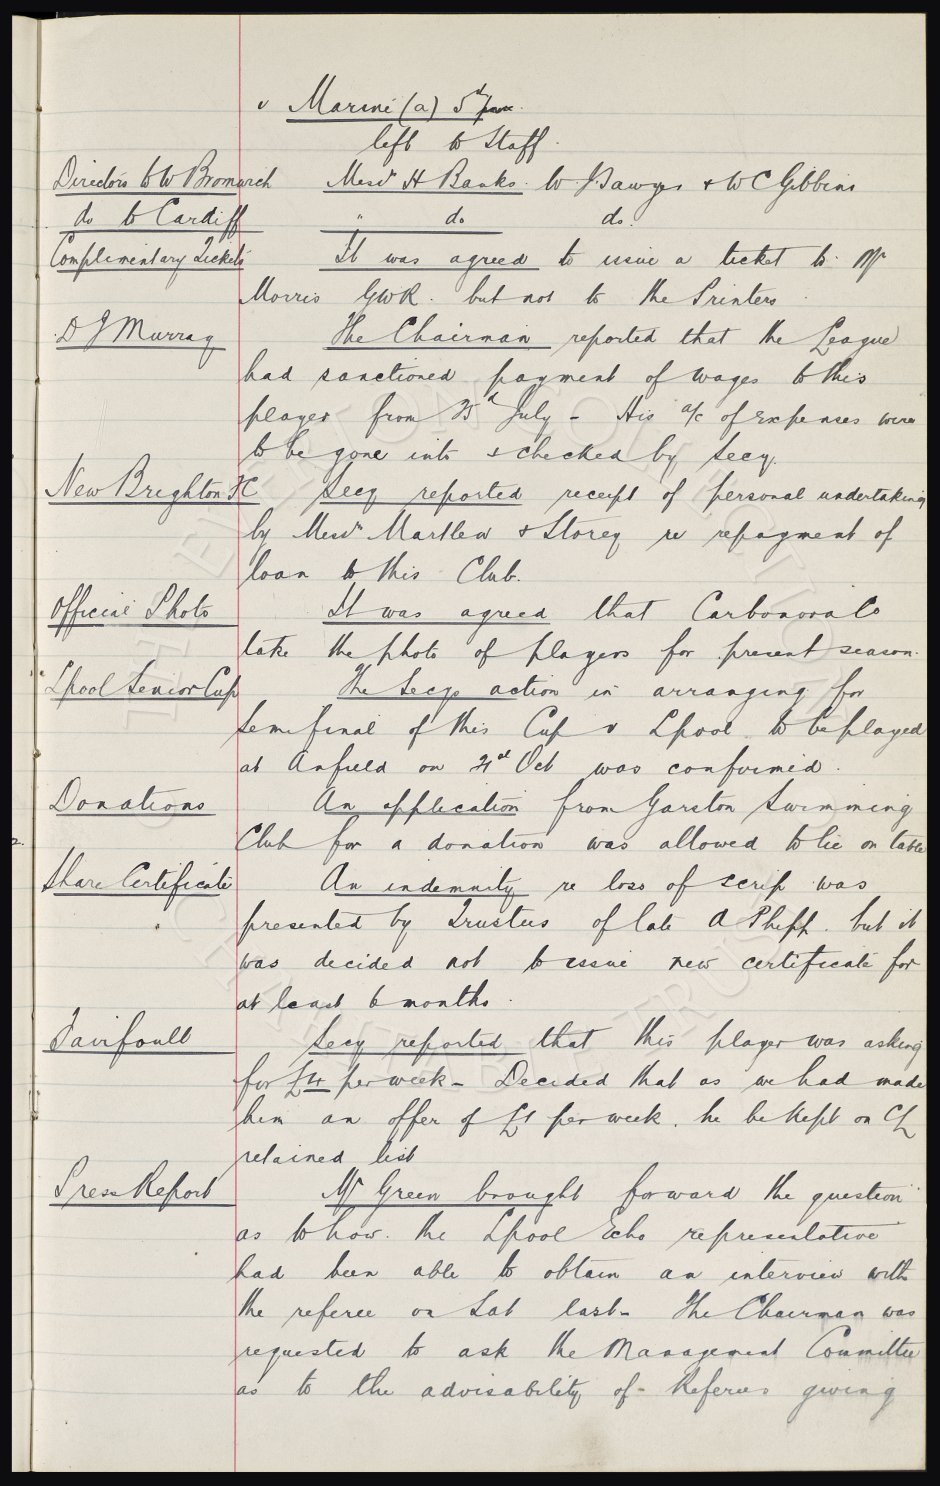 v Marine (a) 5th
left to Staff.
Directors to W Bromwich Messrs H Banks. W. Sawyer & W C Gibbins
do to Cardiff " do do.
Complimentary Tickets It was agreed to issue a ticket to Mr
Morris GWR. but not to the Printers.
D J Murray The Chairman reported that the League
had sanctioned payment of wages to this
player from 25th July - His a/c of expenses were
to be gone into & checked by Secy.
New Brighton FC Secy reported receipt of personal undertaking
by Messrs Martlew & Storey re repayment of
loan to this Club.
Official Photo It was agreed that Carbonora Co
take the photo of players for present season.
Lpool Senior Cup The Secys action in arranging for
semi final of this Cup v Lpool to be played
at Anfield on 21st Oct was confirmed.
Donations An application from Garston Swimming
Club for a donation was allowed to lie on table
Share Certificate An indemnity re loss of scrip was
presented by Trustees of late A Phipp. but it
was decided not to issue new certificate for
at least 6 months.
Fairfoull Secy reported that this player was asking
for £4 per week - Decided that as we had made
him an offer of £1 per week. he be kept on CL
retained list
Press Report Mr Green brought forward the question
as to how. the Lpool Echo representative
had been able to obtain an interview with
the referee on Sat last - The Chairman was
requested to ask the Management Committee
as to the advisability of - Referees giving
THE EVERTON COLLECTION
CHARITABLE TRUST